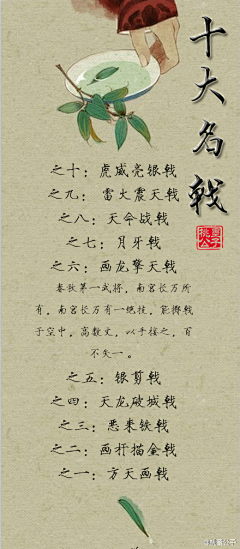 十大名戟
之十：虎威亮银戟
之九：雷火震天戟
之八：天命战戟
之七：月牙戟
之六：画龙擎天戟
春秋第一武将，南宫长万所
有，南宫长万有一绝技，能掷戟
于空中，高数丈，以手接之，百
不失一。
之五：银剪戟
之四：天龙破城戟
之三：恶来铁戟
之二：画杆描金戟
之一：方天画戟